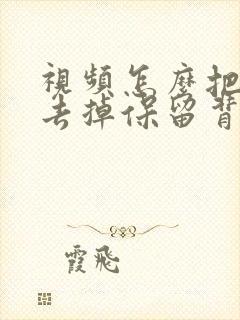 視頻怎麼把
去掉保留背
霞飛